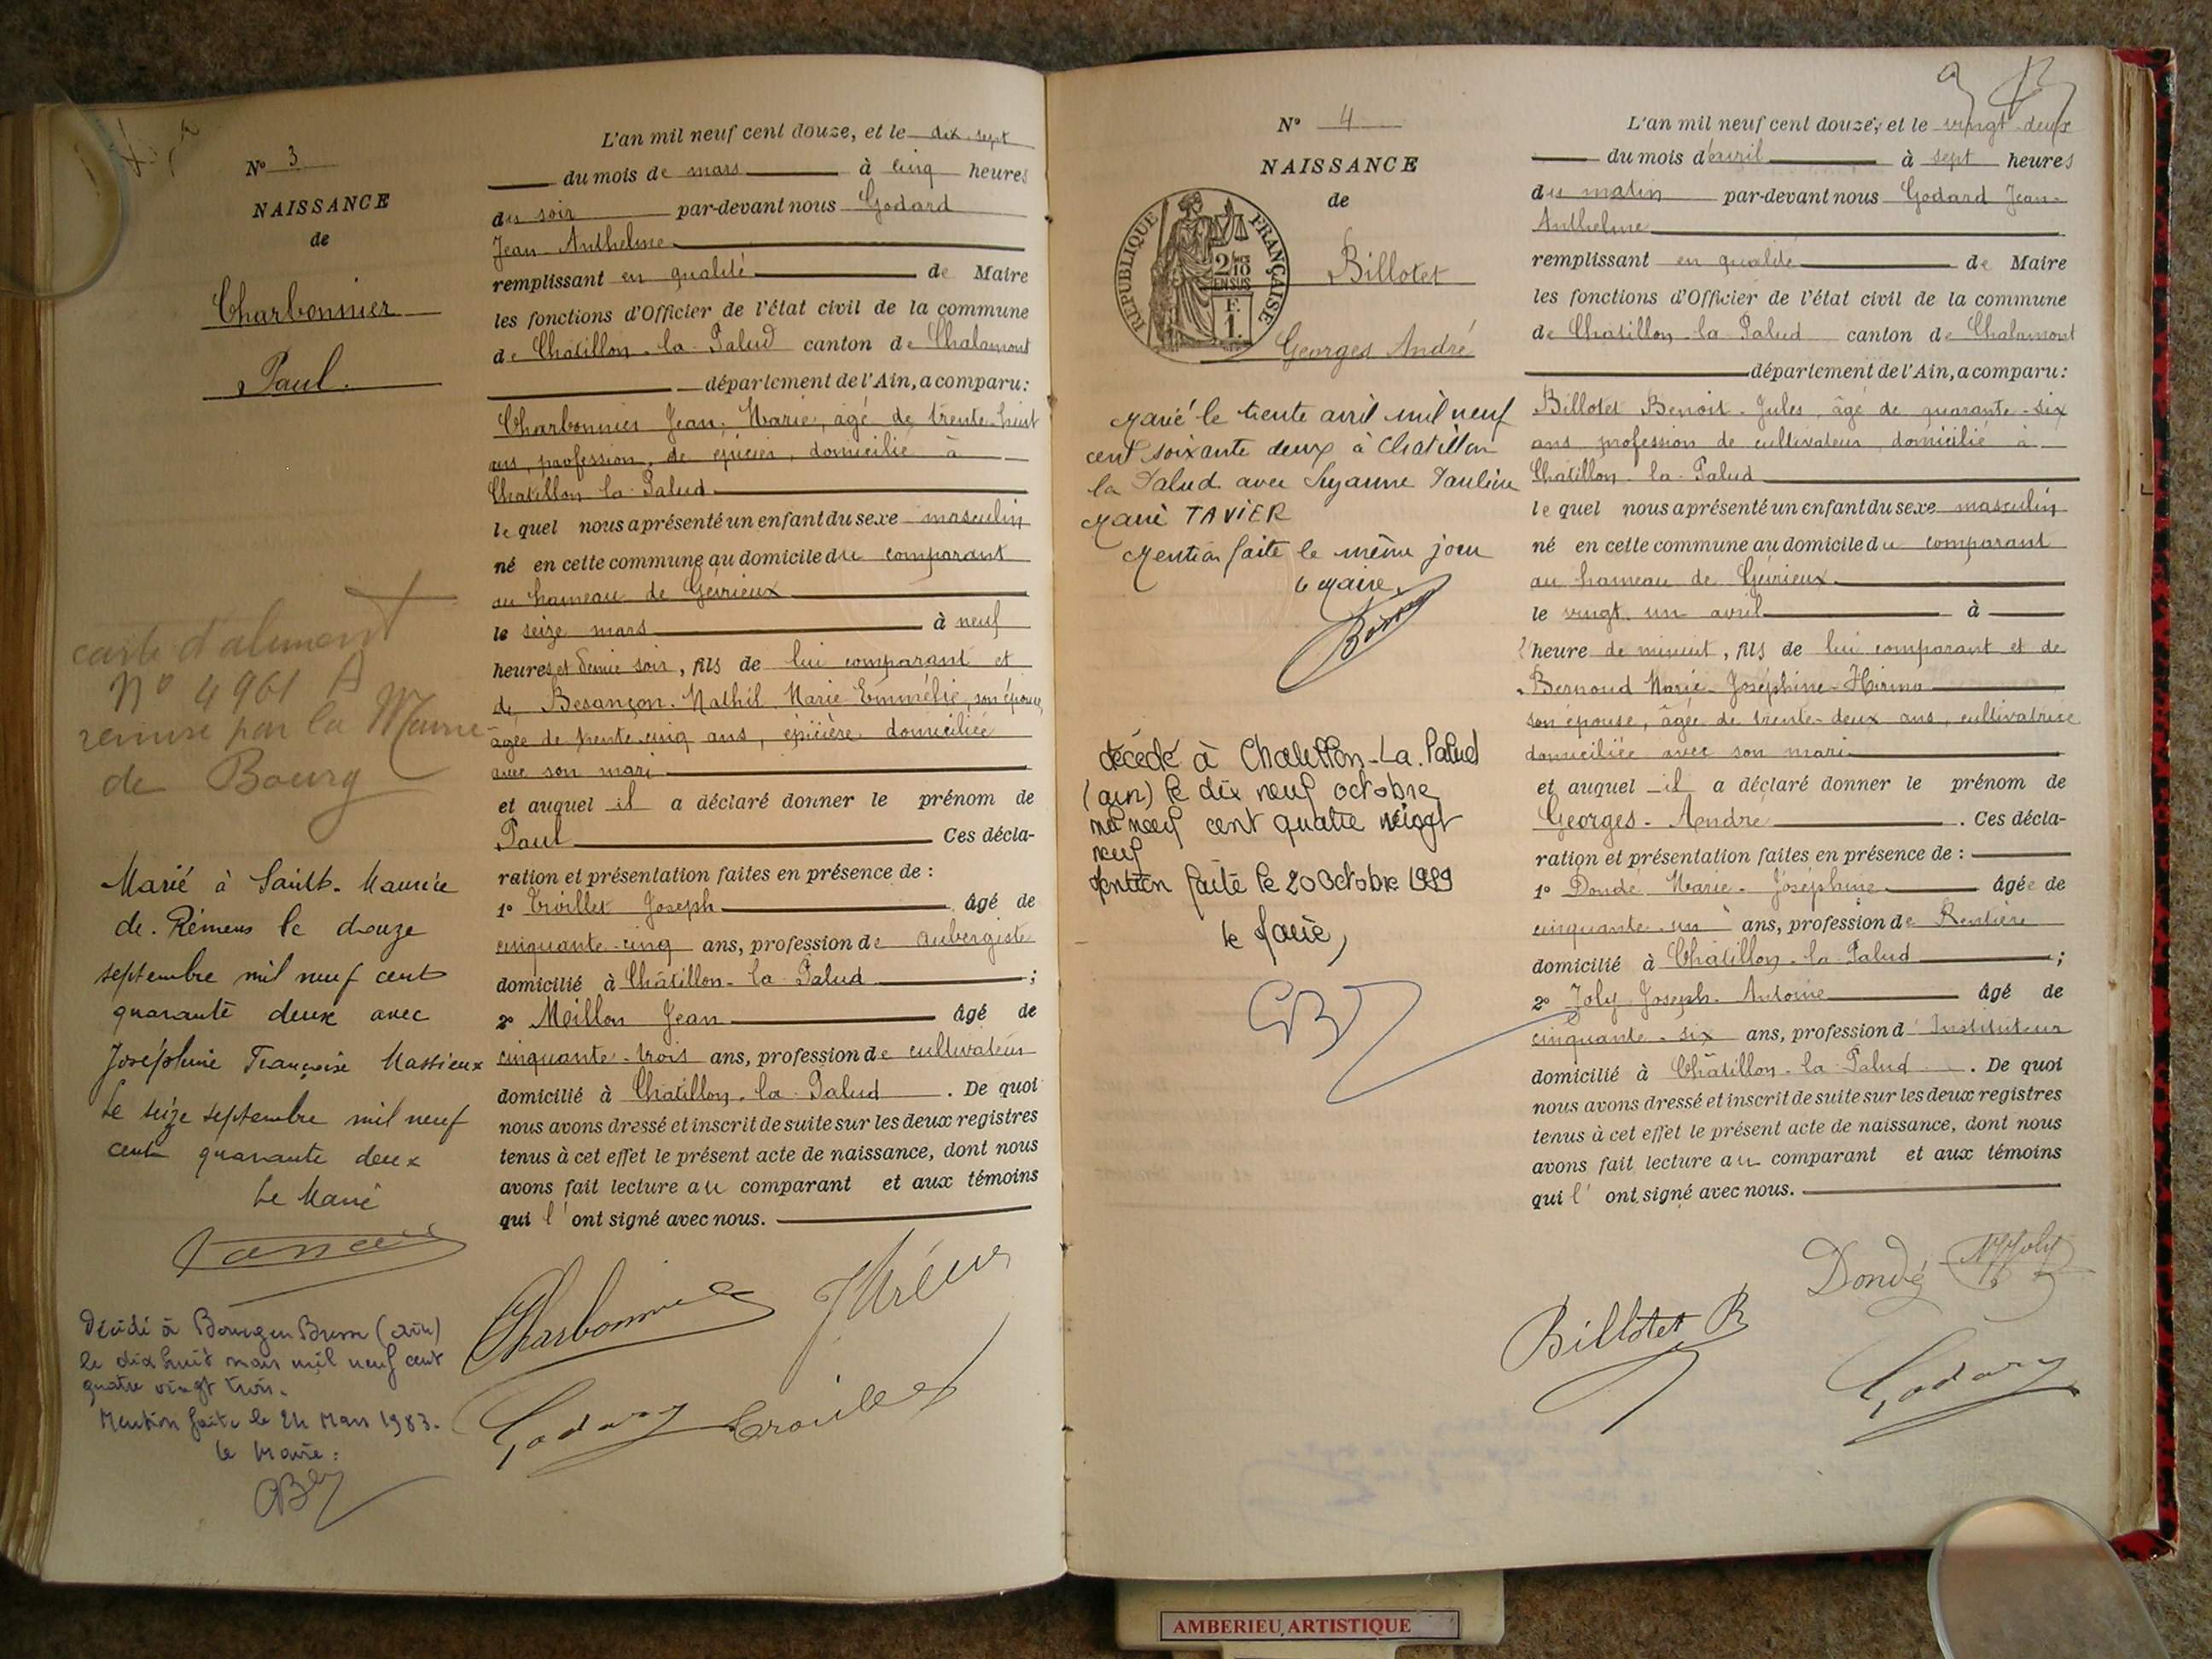 N° 3
NAISSANCE
de
Charbonnier
Paul.
carte d'aliment
N° 4961 A
remise par la Mairie
de Bourg
Marié à Saint-Maurice
de-Rémens le douze
septembre mil neuf cent
quarante deux avec
Joséphine Françoise Massieux
Le seize septembre mil neuf
cent quarante deux
Le Maire
Décédé à Bourg en Bresse (Ain)
le dix huit mars mil neuf cent
quatre vingt trois.
Mention faite le 24 Mars 1983.
le Maire :
L'an mil neuf cent douze, et le dix-sept
du mois de mars à cinq heures
du soir par-devant nous Godard
Jean-Anthelme
remplissant en qualité de Maire
les fonctions d'Officier de l'état civil de la commune
de Châtillon-la-Palud canton de Chalamont
département de l'Ain, a comparu :
Charbonnier Jean-Marie, âgé de trente-huit
ans, profession de épicier, domicilié à
Chatillon-la-Palud
lequel nous a présenté un enfant du sexe masculin
né en cette commune au domicile du comparant
au hameau de Gévrieux
le seize mars à neuf
heures et demie soir, fils de lui comparant et
de Besançon-Mathil Marie Emmélie, son épouse,
âgée de trente-cinq ans, épicière domiciliée
avec son mari
et auquel il a déclaré donner le prénom de
Paul Ces décla-
ration et présentation faites en présence de :
1° Troillet Joseph âgé de
cinquante-cinq ans, profession de aubergiste
domicilié à Châtillon-la-Palud ;
2° Meillon Jean âgé de
cinquante-trois ans, profession de cultivateur
domicilié à Chatillon-la-Palud . De quoi
nous avons dressé et inscrit de suite sur les deux registres
tenus à cet effet le présent acte de naissance, dont nous
avons fait lecture au comparant et aux témoins
qui l'ont signé avec nous.
Charbonnier
Godard Troillet
N° 4
NAISSANCE
de
RÉPUBLIQUE FRANÇAISE
Billotet
Georges André
Marié le trente avril mil neuf
cent soixante deux à Chatillon
la Palud avec Suzanne Pauline
Marie TAVIER
Mention faite le même jour
Le Maire,
décédé à Chatillon-La-Palud
(ain) le dix neuf octobre
mil neuf cent quatre vingt
neuf
Mention faite le 20 Octobre 1989
le Maire,
L'an mil neuf cent douze, et le vingt-deux
du mois d'avril à sept heures
du matin par-devant nous Godard Jean-
Anthelme
remplissant en qualité de Maire
les fonctions d'Officier de l'état civil de la commune
de Châtillon-la-Palud canton de Chalamont
département de l'Ain, a comparu :
Billotet Benoit-Jules, âgé de quarante-six
ans profession de cultivateur domicilié à
Chatillon-la-Palud
lequel nous a présenté un enfant du sexe masculin
né en cette commune au domicile du comparant
au hameau de Gévrieux
le vingt-un avril à
l'heure de minuit, fils de lui comparant et de
Bernoud Marie-Joséphine-Hirina
son épouse, âgée de trente-deux ans, cultivatrice
domiciliée avec son mari
et auquel il a déclaré donner le prénom de
Georges-André . Ces décla-
ration et présentation faites en présence de :
1° Dondé Marie-Joséphine âgée de
cinquante-un ans, profession de Rentière
domicilié à Châtillon-la-Palud ;
2° Joly Joseph-Antoine âgé de
cinquante-six ans, profession d'Instituteur
domicilié à Châtillon-la-Palud . De quoi
nous avons dressé et inscrit de suite sur les deux registres
tenus à cet effet le présent acte de naissance, dont nous
avons fait lecture au comparant et aux témoins
qui l'ont signé avec nous.
Dondé Joly
Billotet B
Godard
AMBERIEU ARTISTIQUE